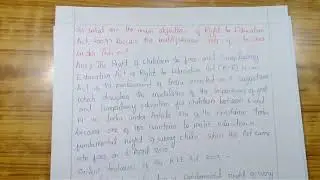 What are the main objectives of Right to Education
Act, 2009? Discuss the role of teacher
under this act.
Ans:- The Right of Children to Free and Compulsory
Education Act or Right to Education Act (RTE) is an
Act of the Parliament of India enacted on 4 August 2009
which describes the modalities of the importance of free
and compulsory education for children between 6 and
14 in India under Article 21a of the Constitution. India
became one of 135 countries to make education a
fundamental right of every child when the act came
into force on 1 April 2010.
features of the RTE Act 2009:-
fundamental right of every